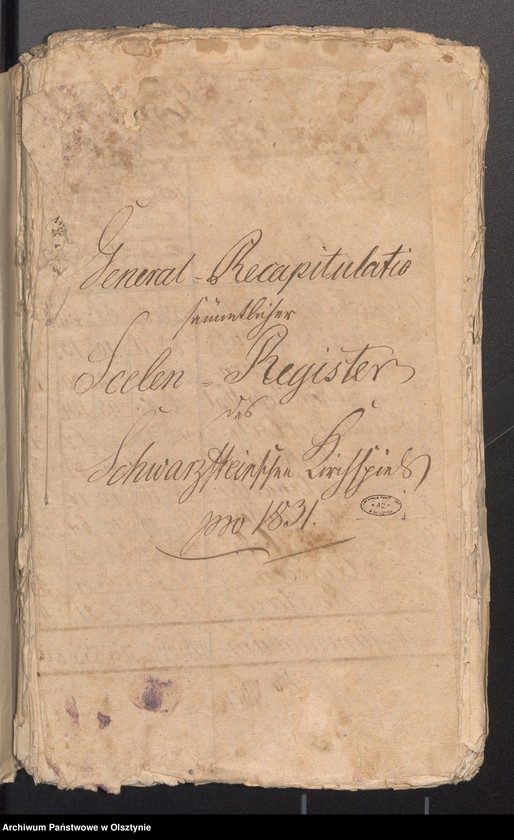 General-Recapitulatio
sämmtlicher
Seelen-Register
des
Schwarzsteinschen Kirchspiels
pro 1831.
Archiwum Państwowe w Olsztynie